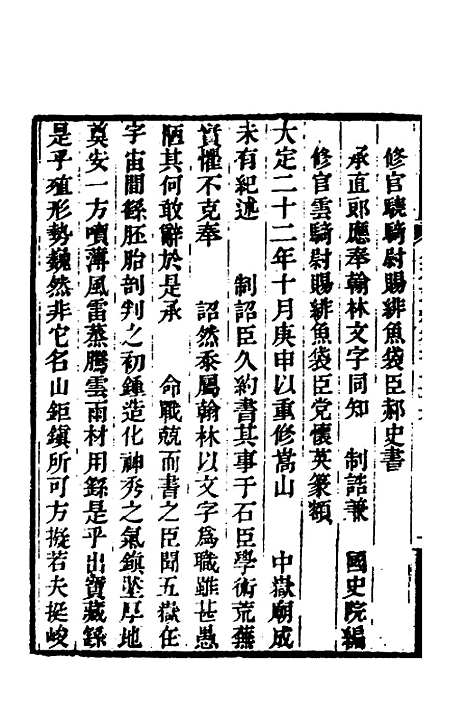 修官驍騎尉賜緋魚袋臣郝史書
承直郎應奉翰林文字同知 制誥兼 國史院編
修官雲騎尉賜緋魚袋臣党懷英篆額
大定二十二年十月庚申以重修嵩山 中嶽廟成
未有紀述 制詔臣久約書其事于石臣學術荒蕪
實懼不克奉 詔然忝屬翰林以文字爲職雖甚愚
陋其何敢辭於是承 命戰兢而書之臣聞五嶽在
宇宙間繇胚胎剖判之初鍾造化神秀之氣鎭壓厚地
奠安一方噴薄風雷蒸騰雲雨材用繇是乎出寶藏繇
是乎殖形勢巍然非它名山鉅鎭所可方擬若夫挺峻